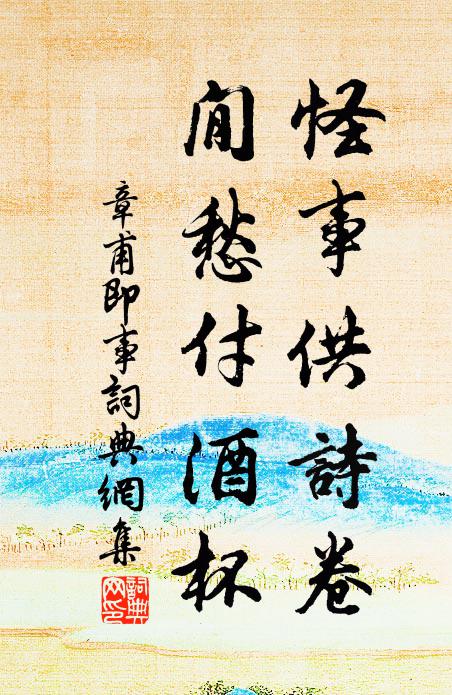 怪事供詩卷
閒愁付酒杯
章甫即事詞典網集